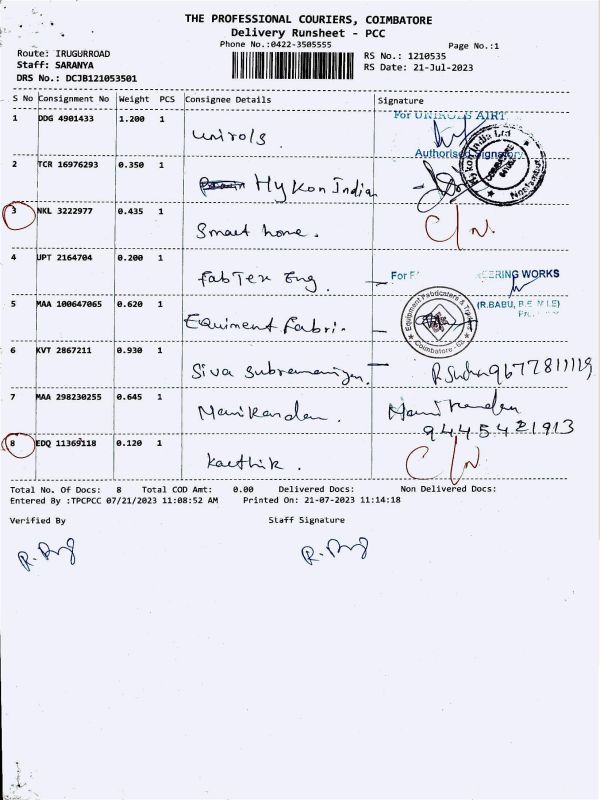 THE PROFESSIONAL COURIERS, COIMBATORE
Delivery Runsheet - PCC
Phone No.:0422-3505555
Page No.:1
Route: IRUGURROAD
Staff: SARANYA
DRS No.: DCJB121053501
RS No.: 1210535
RS Date: 21-Jul-2023
S No Consignment No Weight PCS Consignee Details Signature
1 DDG 4901433 1.200 1 Unirols
For UNIROLS AIRT
Authorised Signatory
2 TCR 16976293 0.350 1 Hykon Indian
Hykon India Ltd
COIMBATORE
3 NKL 3222977 0.435 1 Smart home. C/N.
4 UPT 2164704 0.200 1 FabTex Eng.
For EERING WORKS
(R.BABU, B.E
5 MAA 100647065 0.620 1 Equiment Fabri.
Equipment Fabricators &
Coimbatore
6 KVT 2867211 0.930 1 Siva Subramaniyan. 9677811119
7 MAA 298230255 0.645 1 Manikandan. Manikandan
9445421913
8 EDQ 11369118 0.120 1 Karthik. C/N.
Total No. Of Docs: 8 Total COD Amt: 0.00 Delivered Docs: Non Delivered Docs:
Entered By :TPCPCC 07/21/2023 11:08:52 AM Printed On: 21-07-2023 11:14:18
Verified By Staff Signature